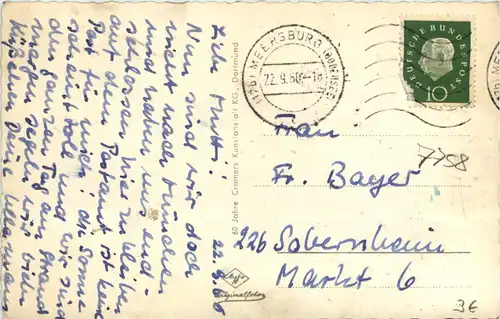 Liebe Mutti! 22.9.60
Nun sind wir doch
nicht nach München
und haben uns ent-
schlossen hier zu bleiben
auf dem Postamt ist keine
Post für mich! die Sonne
scheint toll und wir sind
den ganzen Tag am Strand
morgen segeln wir
Küßchen Deine
60 Jahre Cramers Kunstanstalt KG., Dortmund
Agfa
Originalfoto
(17b) MEERSBURG (BODENSEE)
22.9.60
DEUTSCHE BUNDESPOST
10
Frau
Fr. Bayer
226 Sobernheim
Markt 6
7758
3€